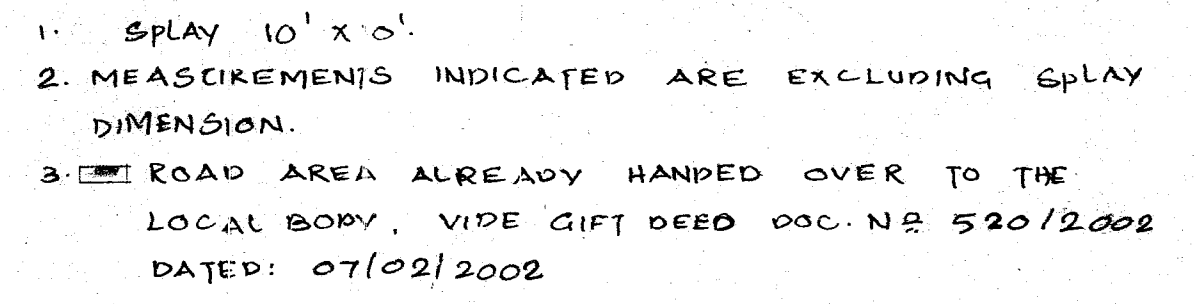 1. SPLAY 10' X 0'.
2. MEASUREMENTS INDICATED ARE EXCLUDING SPLAY
DIMENSION.
3. ROAD AREA ALREADY HANDED OVER TO THE
LOCAL BODY, VIDE GIFT DEED DOC. Nº 520/2002
DATED: 07/02/2002